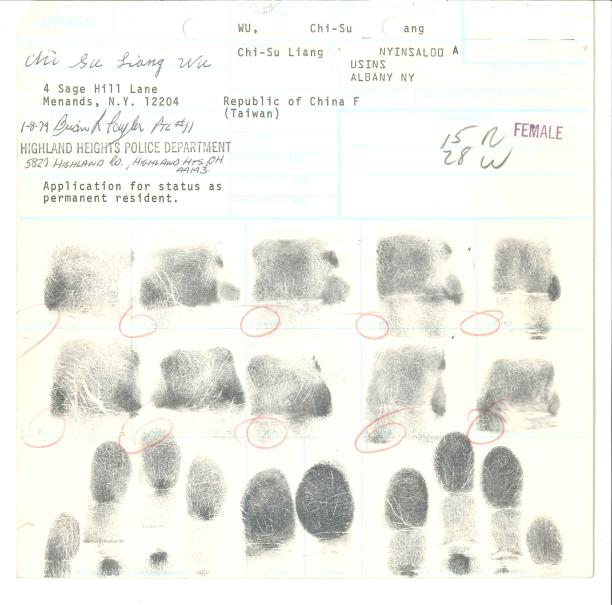 APPLICANT
WU, Chi-Su ang
Chi-Su Liang
NYINSAL00 A
USINS
ALBANY NY
Chi Su Liang Wu
4 Sage Hill Lane
Menands, N.Y. 12204
Republic of China F
(Taiwan)
1-8-79 Brian R #11
HIGHLAND HEIGHTS POLICE DEPARTMENT
5827 HIGHLAND RD., HIGHLAND HTS, OH.
44143
15 R
28 W
FEMALE
Application for status as
permanent resident.